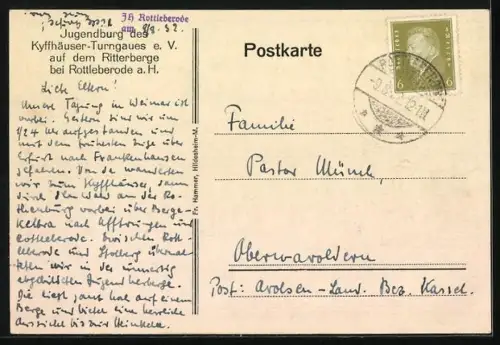 JH Rottleberode
am 8/8. 32.
Jugendburg des
Kyffhäuser-Turngaues e. V.
auf dem Ritterberge
bei Rottleberode a. H.
Postkarte
Liebe Eltern!
Unsere Tagung in Weimar ist
vorbei. Gestern sind wir um
1/24 Uhr aufgestanden und
mit dem frühesten Zuge über
Erfurt nach Frankenhausen
gefahren. Von da wanderten
wir zum Kyffhäuser, dann
durch den Wald an der Ro-
thenburg vorbei über Berga-
Kelbra nach Uftrungen und
Rottleberode. Zwischen Rott-
leberode und Stolberg übernach-
teten wir in der umseitig
abgebildeten Jugendherberge.
Die liegt ganz hoch auf einem
Berge und bietet eine herrliche
Aussicht bis zur
Fr. Hammer, Hildesheim-M.
DEUTSCHES REICH
6 6
Familie
Pastor Münch,
Oberwaroldern
Post: Arolsen-Land. Bez. Kassel.